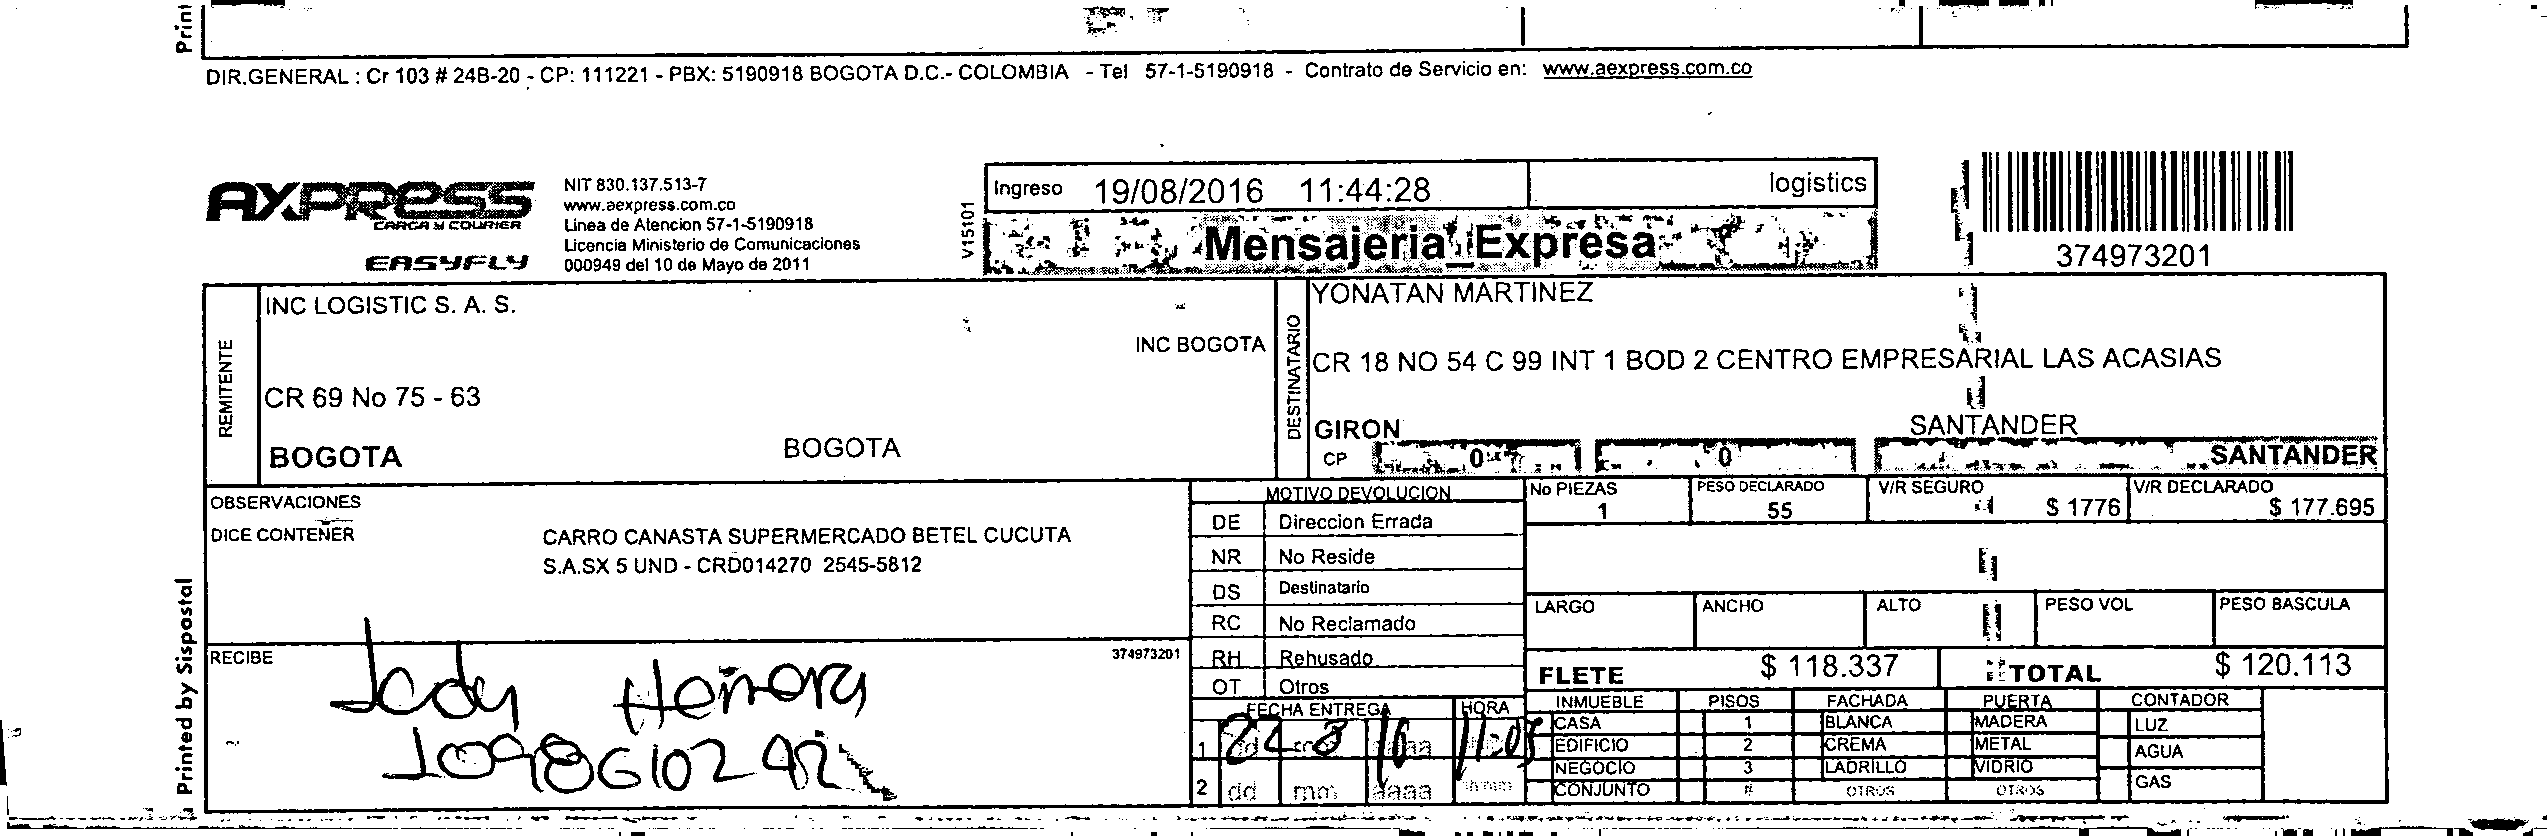 Print
DIR.GENERAL : Cr 103 # 24B-20 - CP: 111221 - PBX: 5190918 BOGOTA D.C.- COLOMBIA - Tel 57-1-5190918 - Contrato de Servicio en: www.aexpress.com.co
AXPRESS
CARGA Y COURIER
EASYFLY
NIT 830.137.513-7
www.aexpress.com.co
Linea de Atencion 57-1-5190918
Licencia Ministerio de Comunicaciones
000949 del 10 de Mayo de 2011
V15101
Ingreso 19/08/2016 11:44:28 logistics
Mensajeria_Expresa
374973201
REMITENTE
INC LOGISTIC S. A. S.
INC BOGOTA
CR 69 No 75 - 63
BOGOTA BOGOTA
DESTINATARIO
YONATAN MARTINEZ
CR 18 NO 54 C 99 INT 1 BOD 2 CENTRO EMPRESARIAL LAS ACASIAS
GIRON SANTANDER
CP 0 0 SANTANDER
OBSERVACIONES
DICE CONTENER CARRO CANASTA SUPERMERCADO BETEL CUCUTA
S.A.SX 5 UND - CRD014270 2545-5812
MOTIVO DEVOLUCION
DE Direccion Errada
NR No Reside
DS Destinatario
RC No Reclamado
RH Rehusado
OT Otros
No PIEZAS PESO DECLARADO V/R SEGURO V/R DECLARADO
1 55 $ 1776 $ 177.695
LARGO ANCHO ALTO PESO VOL PESO BASCULA
FLETE $ 118.337 TOTAL $ 120.113
RECIBE 374973201
Herrera
FECHA ENTREGA HORA
1 22 8 16 11:05
2 dd mm aaaa
INMUEBLE PISOS FACHADA PUERTA CONTADOR
CASA 1 BLANCA MADERA LUZ
EDIFICIO 2 CREMA METAL AGUA
NEGOCIO 3 LADRILLO VIDRIO GAS
CONJUNTO # OTROS OTROS
Printed by Sispostal